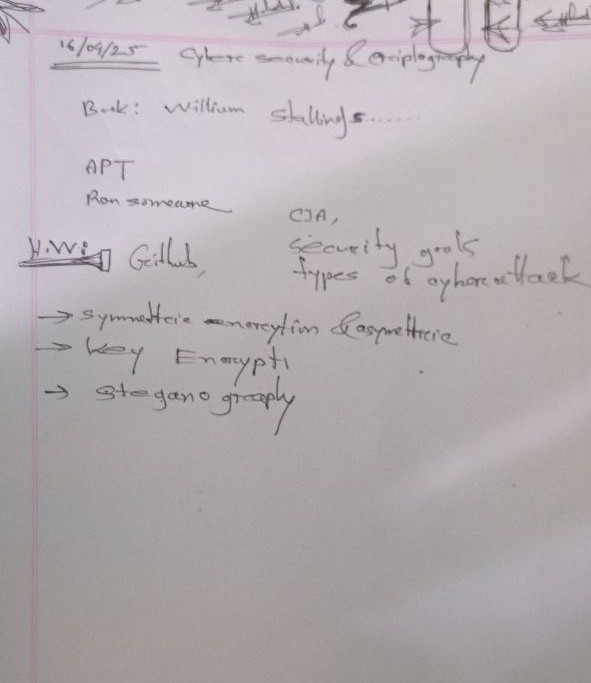 16/09/25 Cyber security & Criptography
Book: Willium Stallings......
APT
Ransomeware
CIA,
H.W: Geithub,
Security goals
types of cyber attack
→ symmetric encrytion & asymettric
→ Key Encrypti
→ Steganography